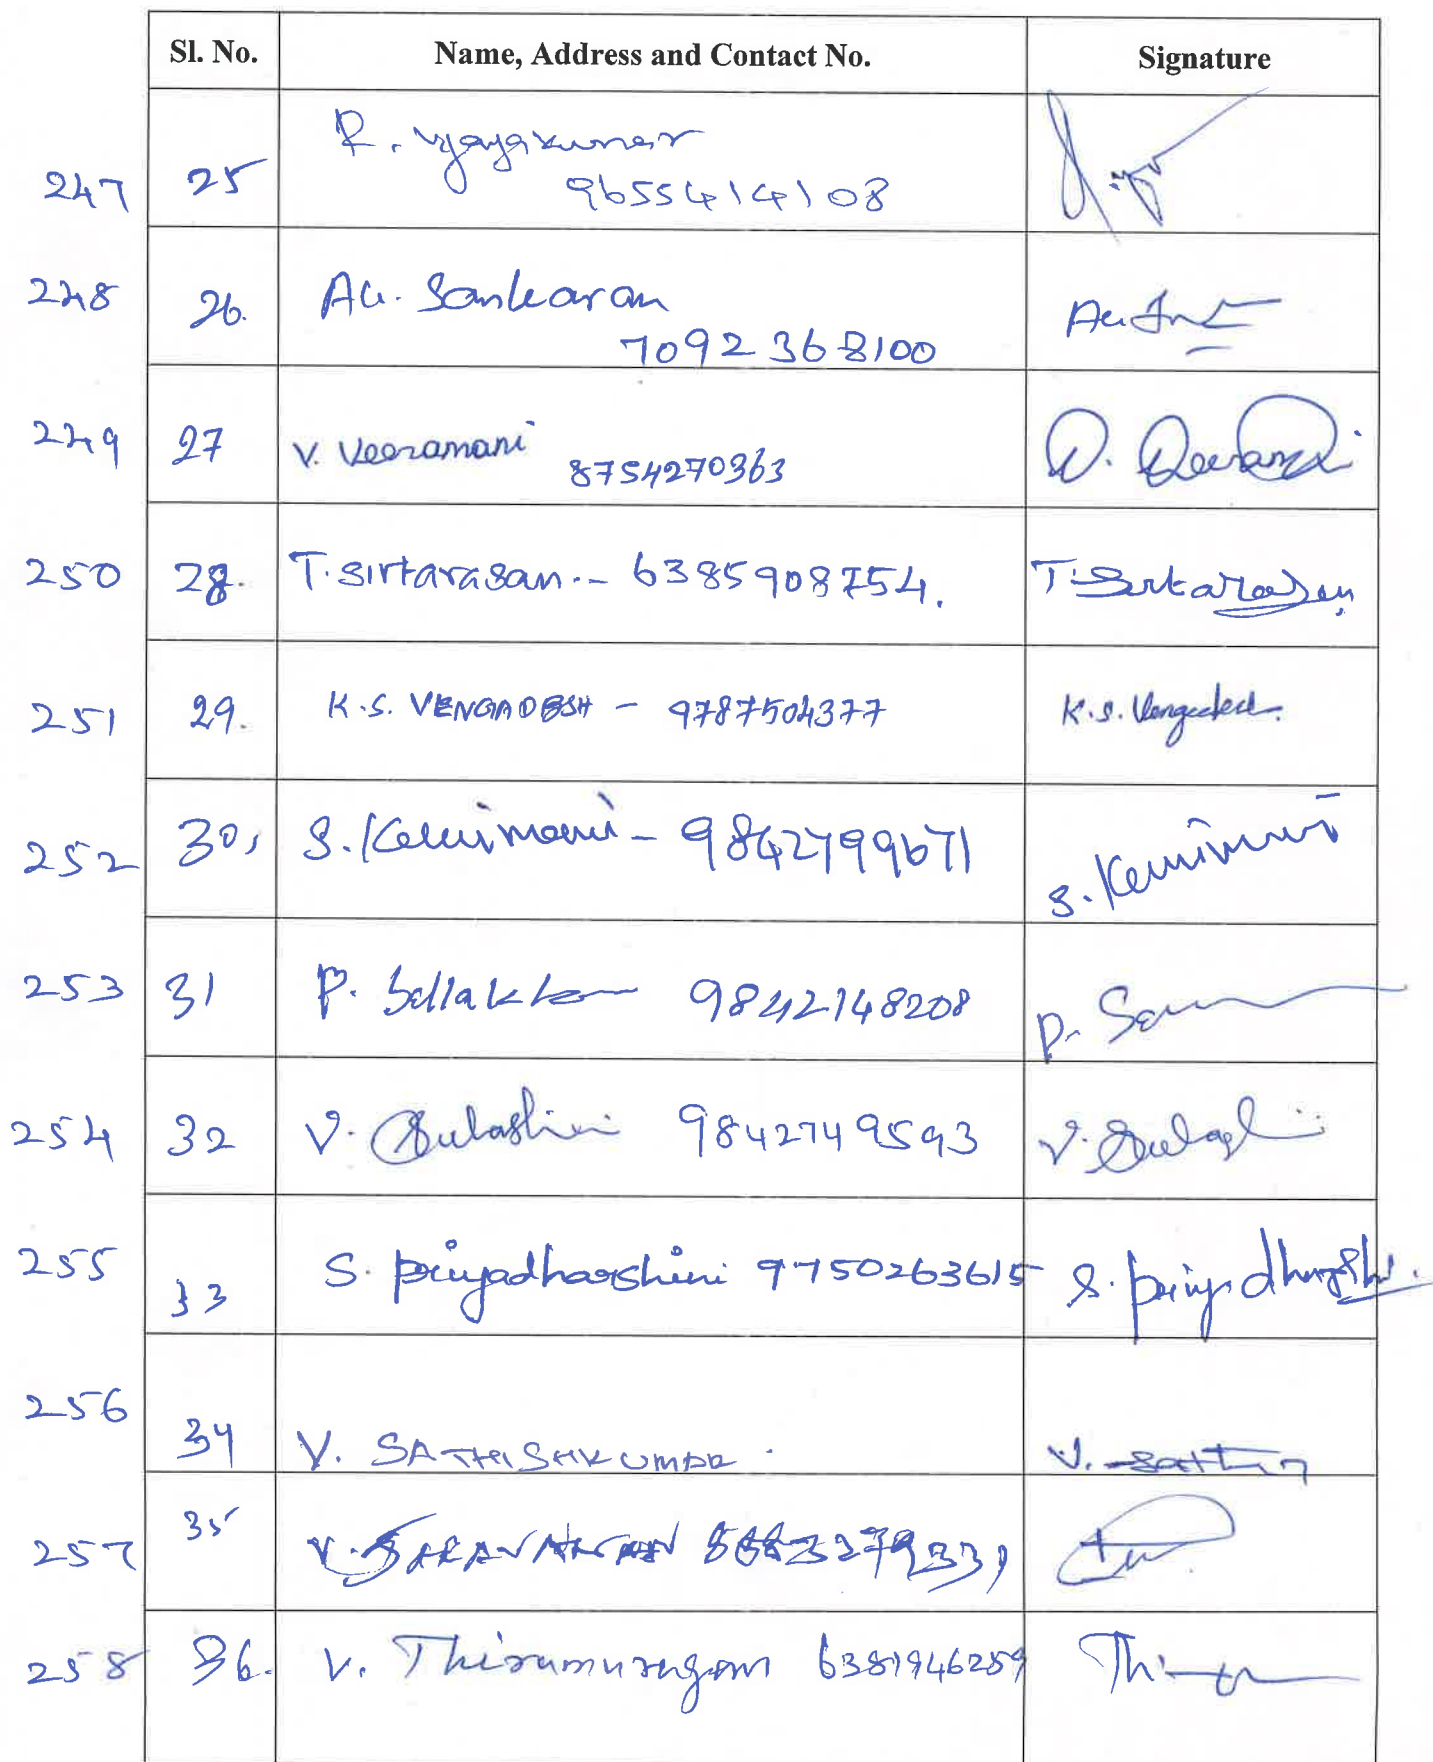 Sl. No. Name, Address and Contact No. Signature
247 25 R. Vijayakumar
9655414108
248 26. AU. Sankaran
7092368100
249 27 V. Veeramani
8754270363
250 28. T. Sirtarasan.- 6385908754. T. Sirtarasan
251 29. K.S. VENGADESH - 9787504377 K.S. Vengadesh
252 30, S. - 9842799671 S.
253 31 P. 9842148208 P.
254 32 V. Subashini 9842749593 V. Subashini
255 33 S. Priyadharshini 9750263615 S. Priyadharshini.
256 34 V. SATHISHKUMAR. V.
257 35 V. SARAVANAN
258 36. V. Thirumurugan 6381946259